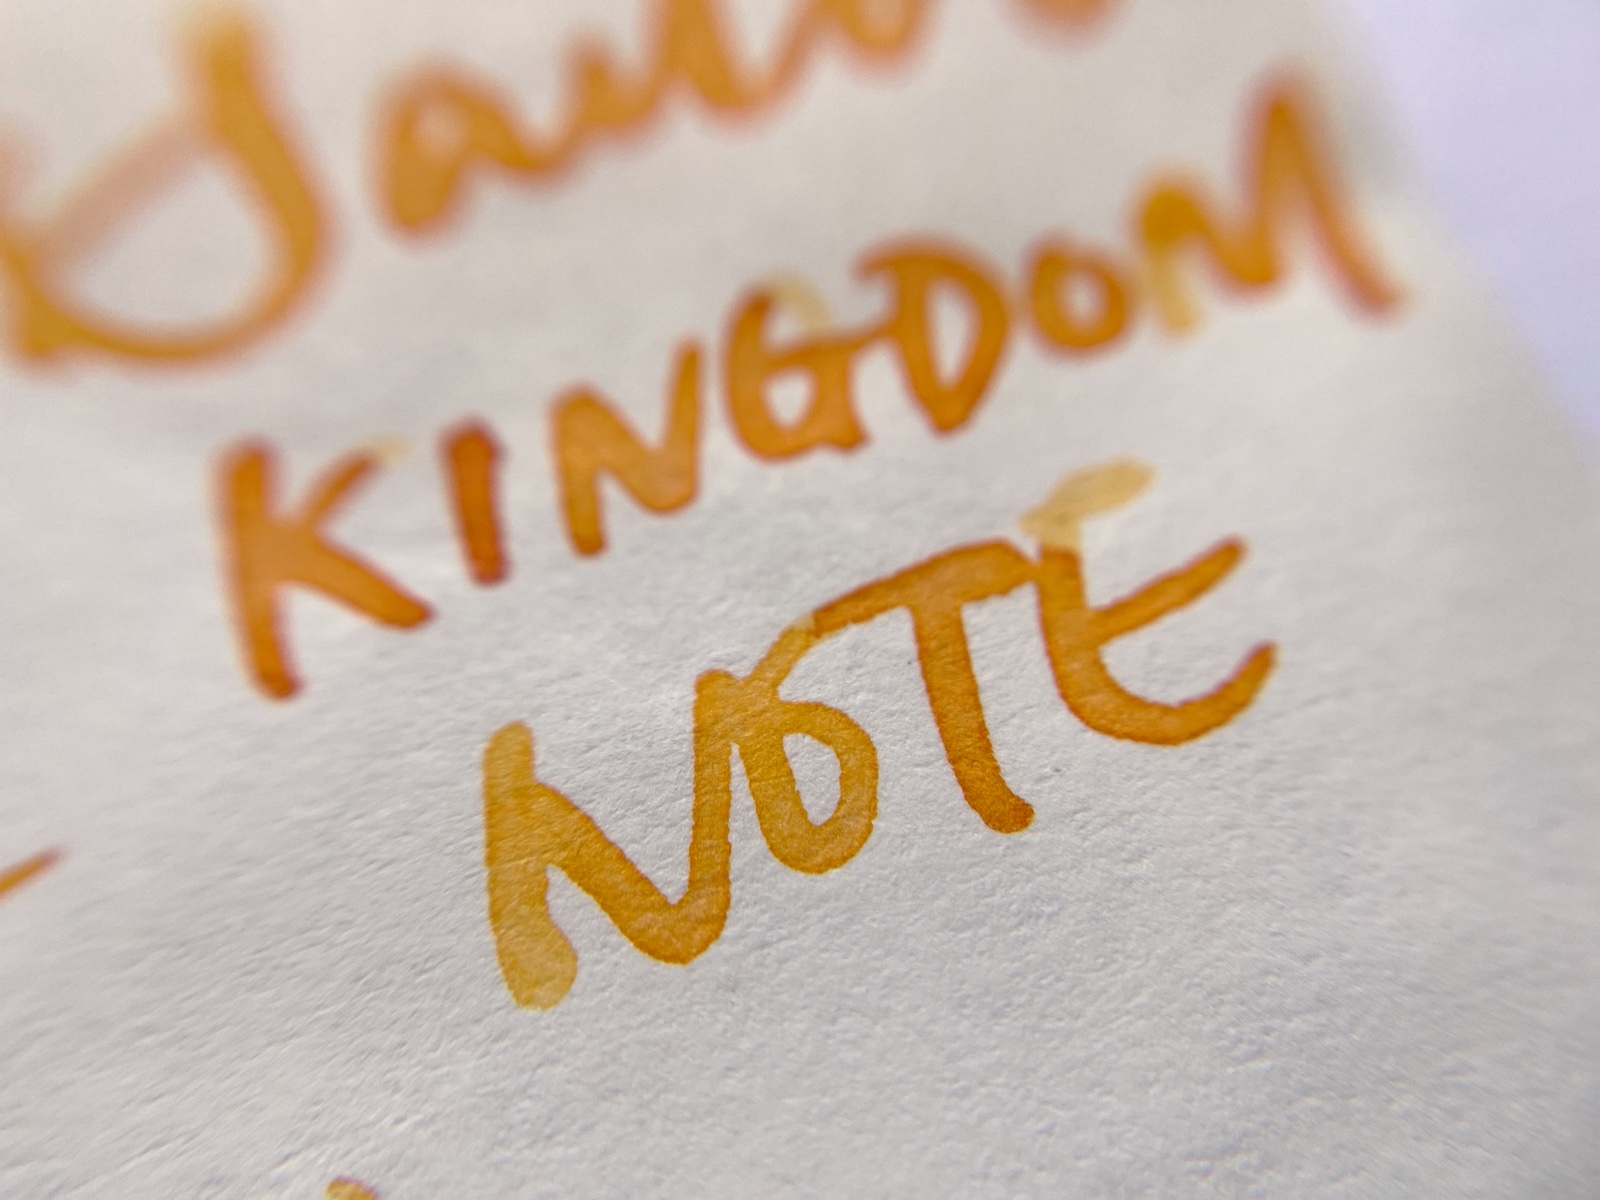 KINGDOM
NOTE